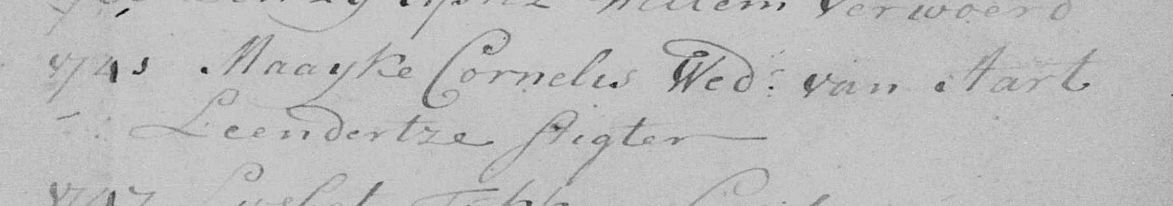 Willem Verwoerd
1745 Maayke Cornelis Wed: van Aart
Leendertze Stigter
1747